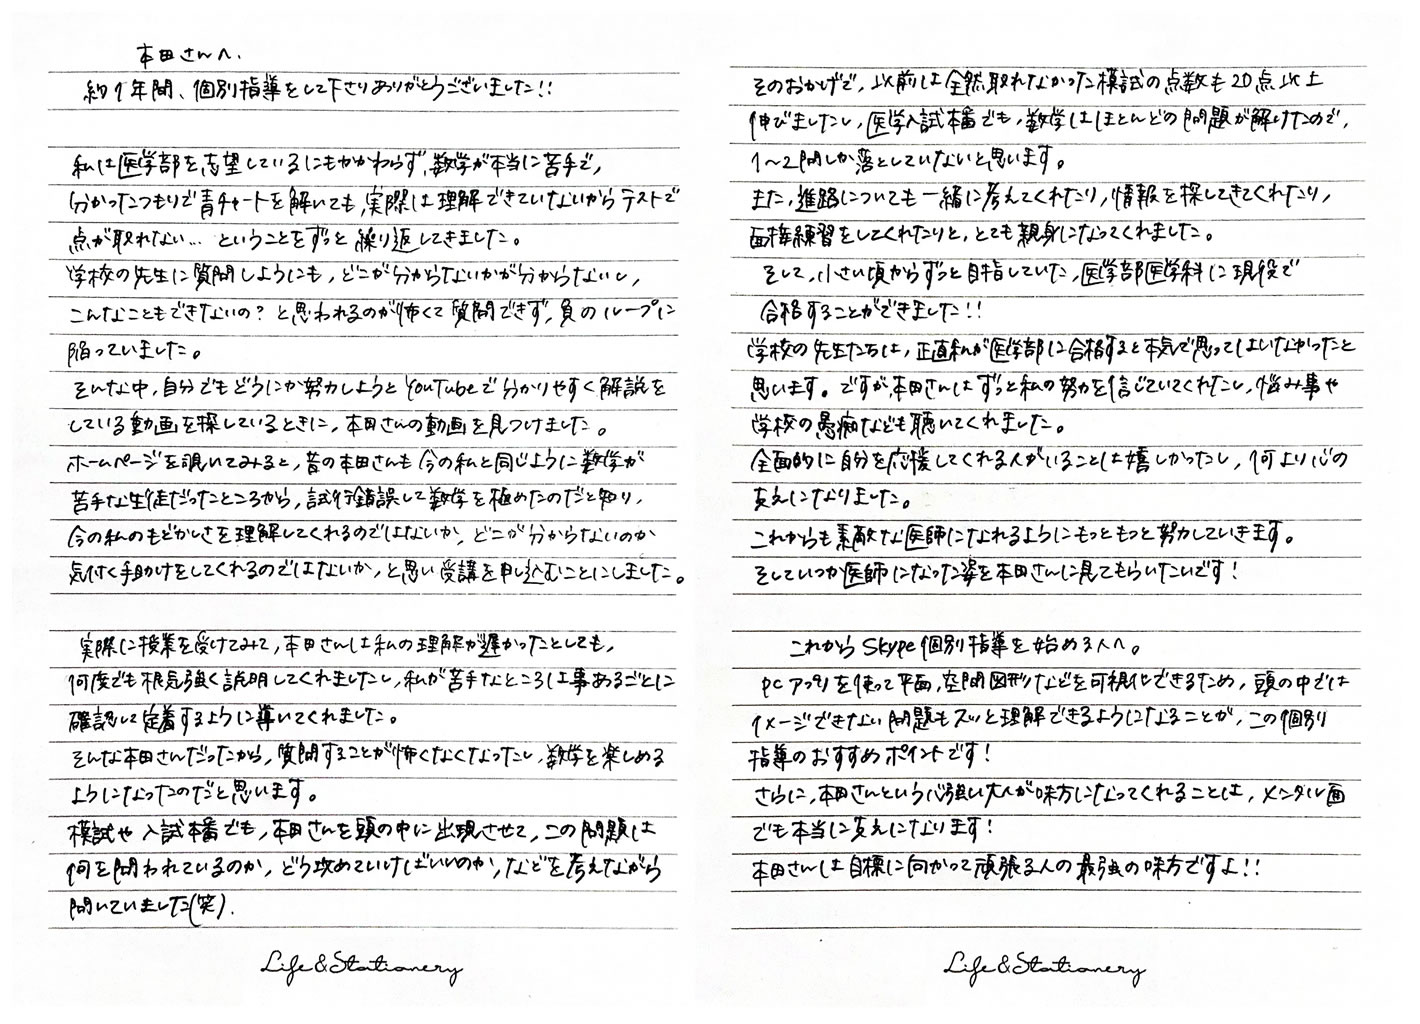 本田さんへ.
約1年間、個別指導をして下さりありがとうございました!!
私は医学部を志望しているにもかかわらず、数学が本当に苦手で,
分かったつもりで青チャートを解いても,実際は理解できていないからテストで
点が取れない… ということをずっと繰り返してきました。
学校の先生に質問しようにも,どこが分からないかが分からないし,
こんなこともできないの? と思われるのが怖くて質問できず,負のループに
陥っていました。
そんな中,自分でもどうにか努力しようとYouTubeで分かりやすく解説を
している動画を探しているときに,本田さんの動画を見つけました。
ホームページを覗いてみると,昔の本田さんも今の私と同じように数学が
苦手な生徒だったところから,試行錯誤して数学を極めたのだと知り,
今の私のもどかしさを理解してくれるのではないか,どこが分からないのか
気付く手助けをしてくれるのではないか,と思い受講を申し込むことにしました。
実際に授業を受けてみて,本田さんは私の理解が遅かったとしても,
何度でも根気強く説明してくれましたし,私が苦手なところは事あるごとに
確認して定着するように導いてくれました。
そんな本田さんだったから,質問することが怖くなくなったし,数学を楽しめる
ようになったのだと思います。
模試や入試本番でも,本田さんを頭の中に出現させて,この問題は
何を問われているのか,どう攻めていけばいいのか,などを考えながら
問いていました(笑).
Life&Stationery
そのおかげで,以前は全然取れなかった模試の点数も20点以上
伸びましたし,医学入試本番でも,数学はほとんどの問題が解けたので,
1〜2問しか落としていないと思います。
また,進路についても一緒に考えてくれたり,情報を探してきてくれたり,
面接練習をしてくれたりと,とても親身になってくれました。
そして,小さい頃からずっと目指していた,医学部医学科に現役で
合格することができました!!
学校の先生たちは,正直私が医学部に合格すると本気で思ってはいなかったと
思います。ですが,本田さんはずっと私の努力を信じていてくれたし,悩み事や
学校の愚痴なども聴いてくれました。
全面的に自分を応援してくれる人がいることは嬉しかったし,何より心の
支えになりました。
これからも素敵な医師になれるようにもっともっと努力していきます。
そしていつか医師になった姿を本田さんに見てもらいたいです!
これからSkype個別指導を始める人へ。
PCアプリを使って平面,空間図形などを可視化できるため,頭の中では
イメージできない問題もスッと理解できるようになることが,この個別
指導のおすすめポイントです!
さらに,本田さんという心強い大人が味方になってくれることは,メンタル面
でも本当に支えになります!
本田さんは目標に向かって頑張る人の最強の味方ですよ!!
Life&Stationery